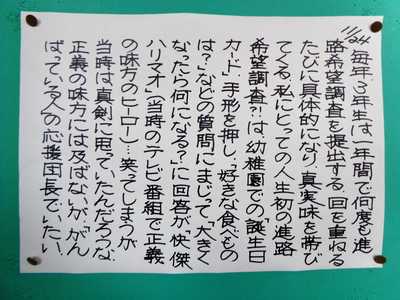 11/24
毎年、3年生は一年間で何度も進
路希望調査を提出する。回を重ねる
たびに具体的になり、真実味を帯び
てくる。私にとっての人生初の進路
希望調査?!は、幼稚園での「誕生日
カード」。手形を押し…「好きな食べもの
は?」などの質問にまじって、「大きく
なったら何になる?」に回答が「快傑
ハリマオ」(当時のテレビ番組で正義
の味方のヒーロー)…。笑ってしまうが
当時は、真剣に思ていたんだろうな。
正義の味方には及ばないが、「がん
ばっている人」の応援団長でいたい。